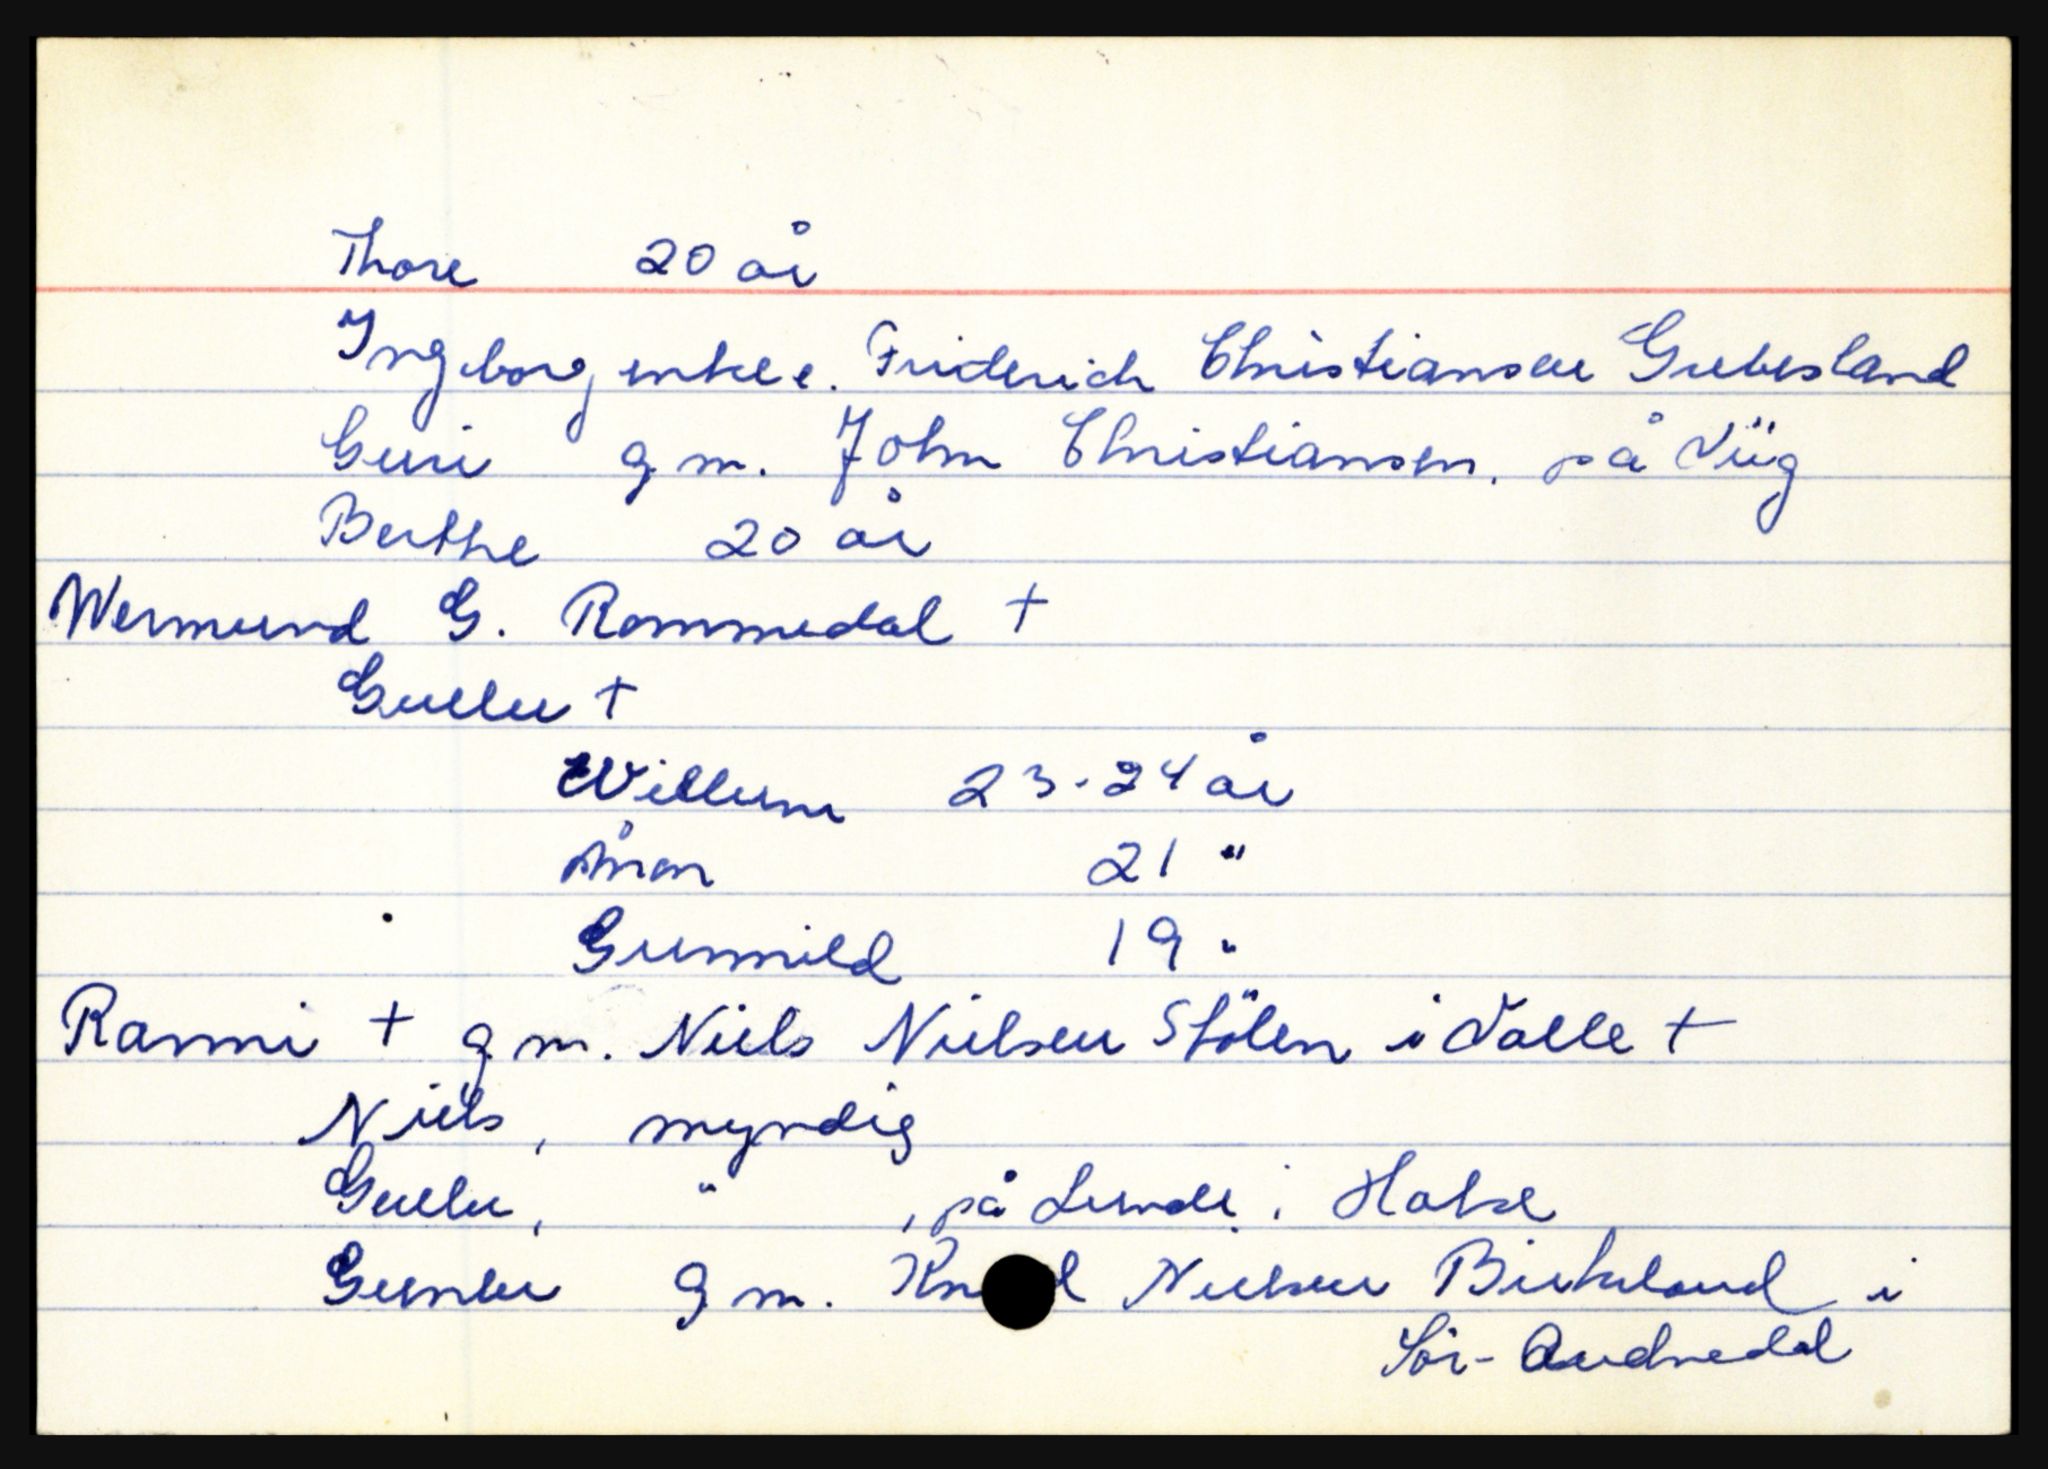 Thore 20 år
Ingeborg enke e. Friderich Christiansen Grebesland
Guri g m. John Christiansen, på Viig
Berthe 20 år
Wermund G. Rommedal +
Gulleu +
Willum 23-24 år
Ånon 21 "
Gunnild 19 "
Ranni + g m. Niels Nielsen Stölen i Valle +
Niels, myndig
Gulleu, " , på Lunde i
Gunbu g m. Knud Nielsen Birkeland i
Sör-Audnedal